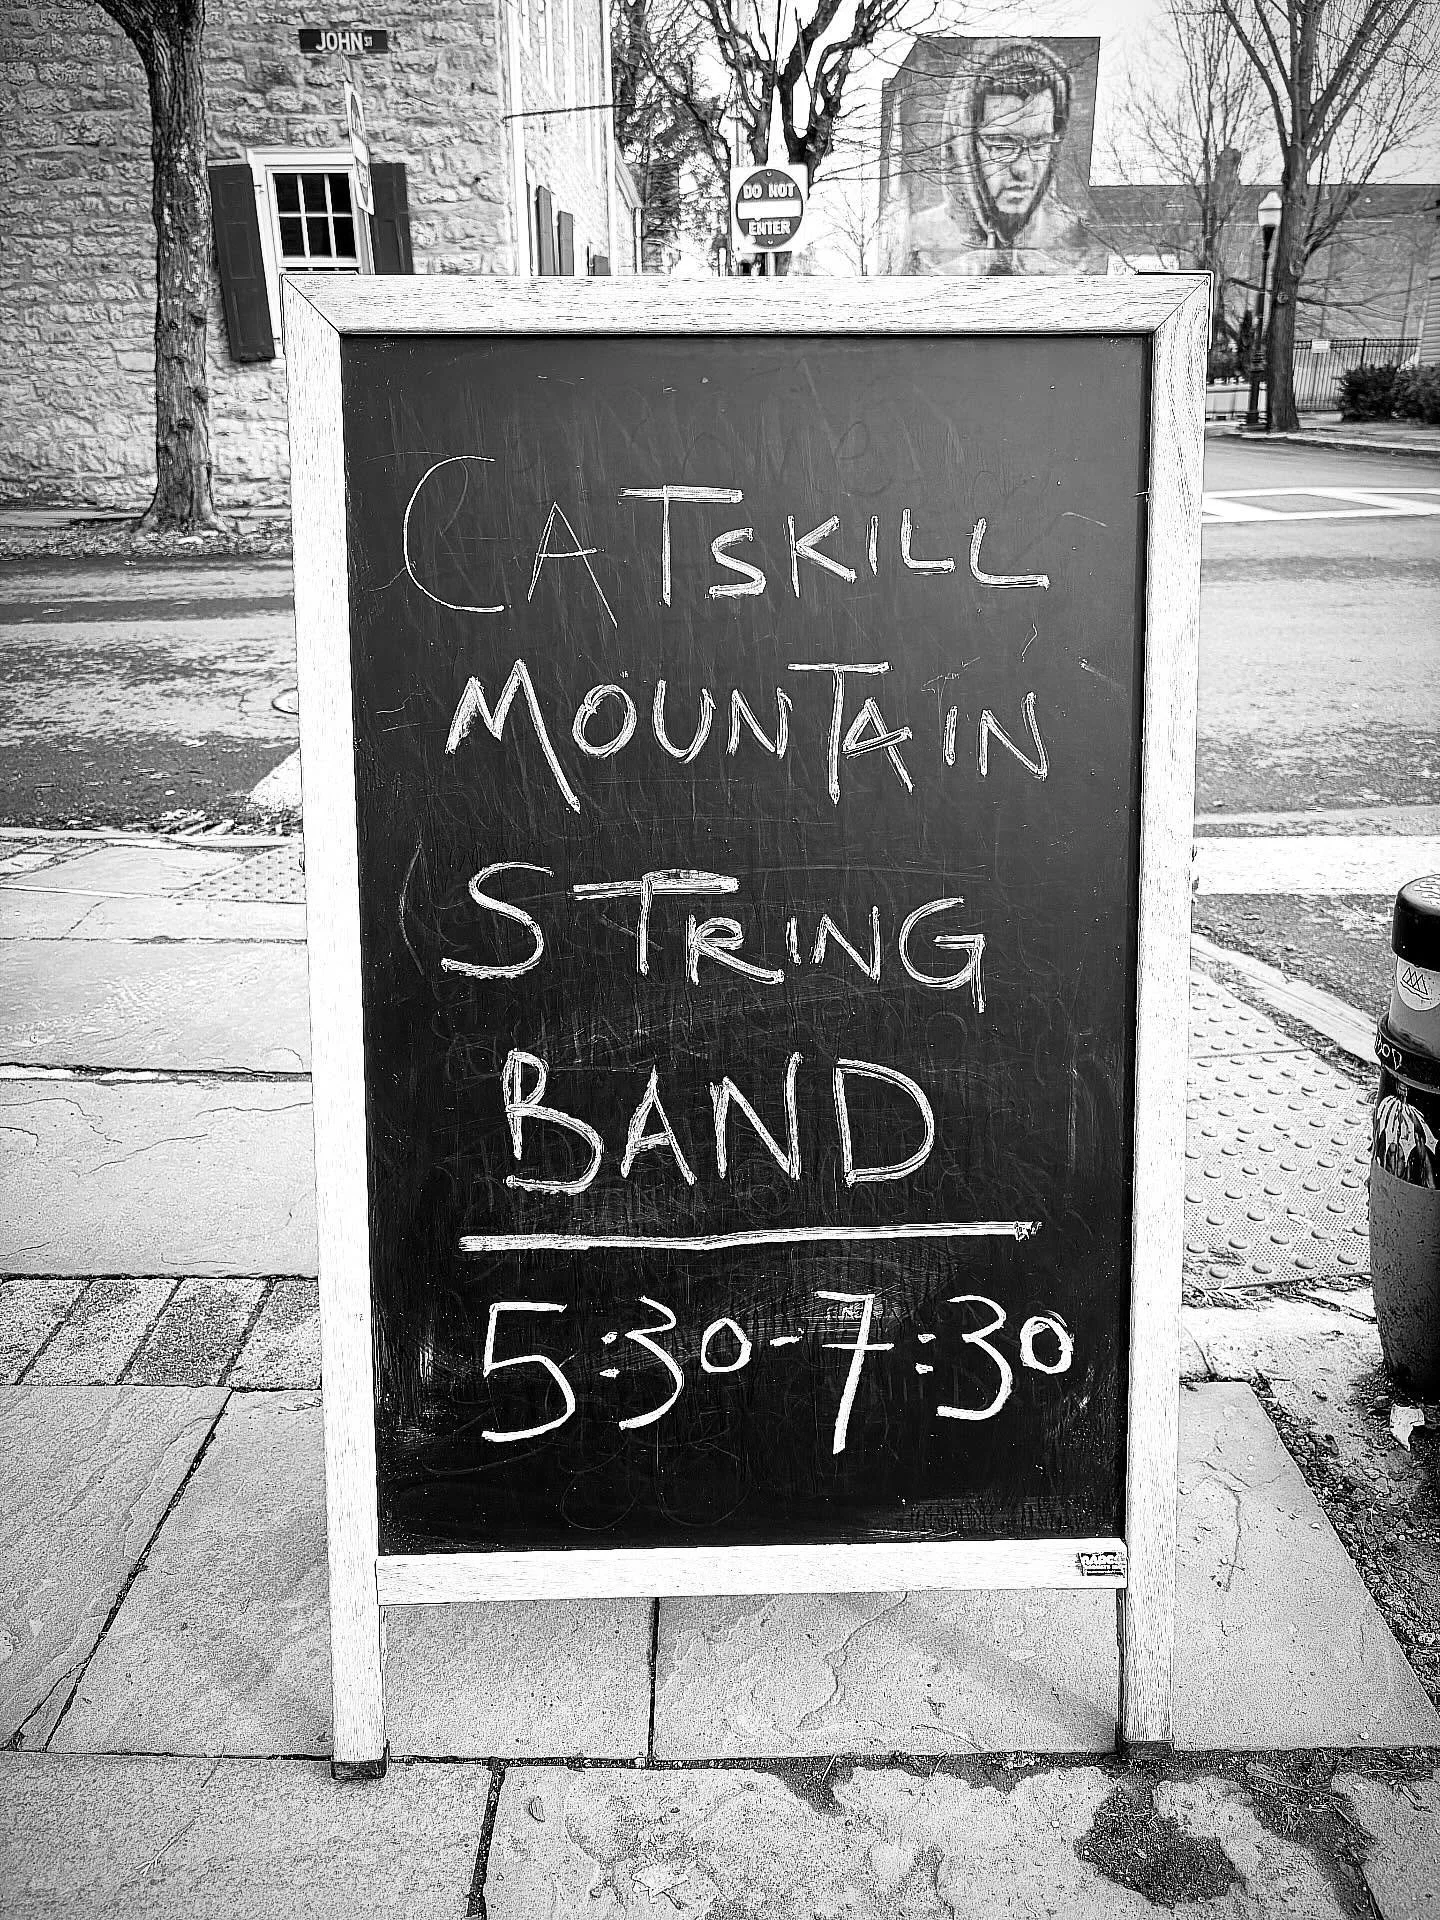 JOHN ST
DO NOT
ENTER
CATSKILL
MOUNTAIN
STRING
BAND
5:30-7:30